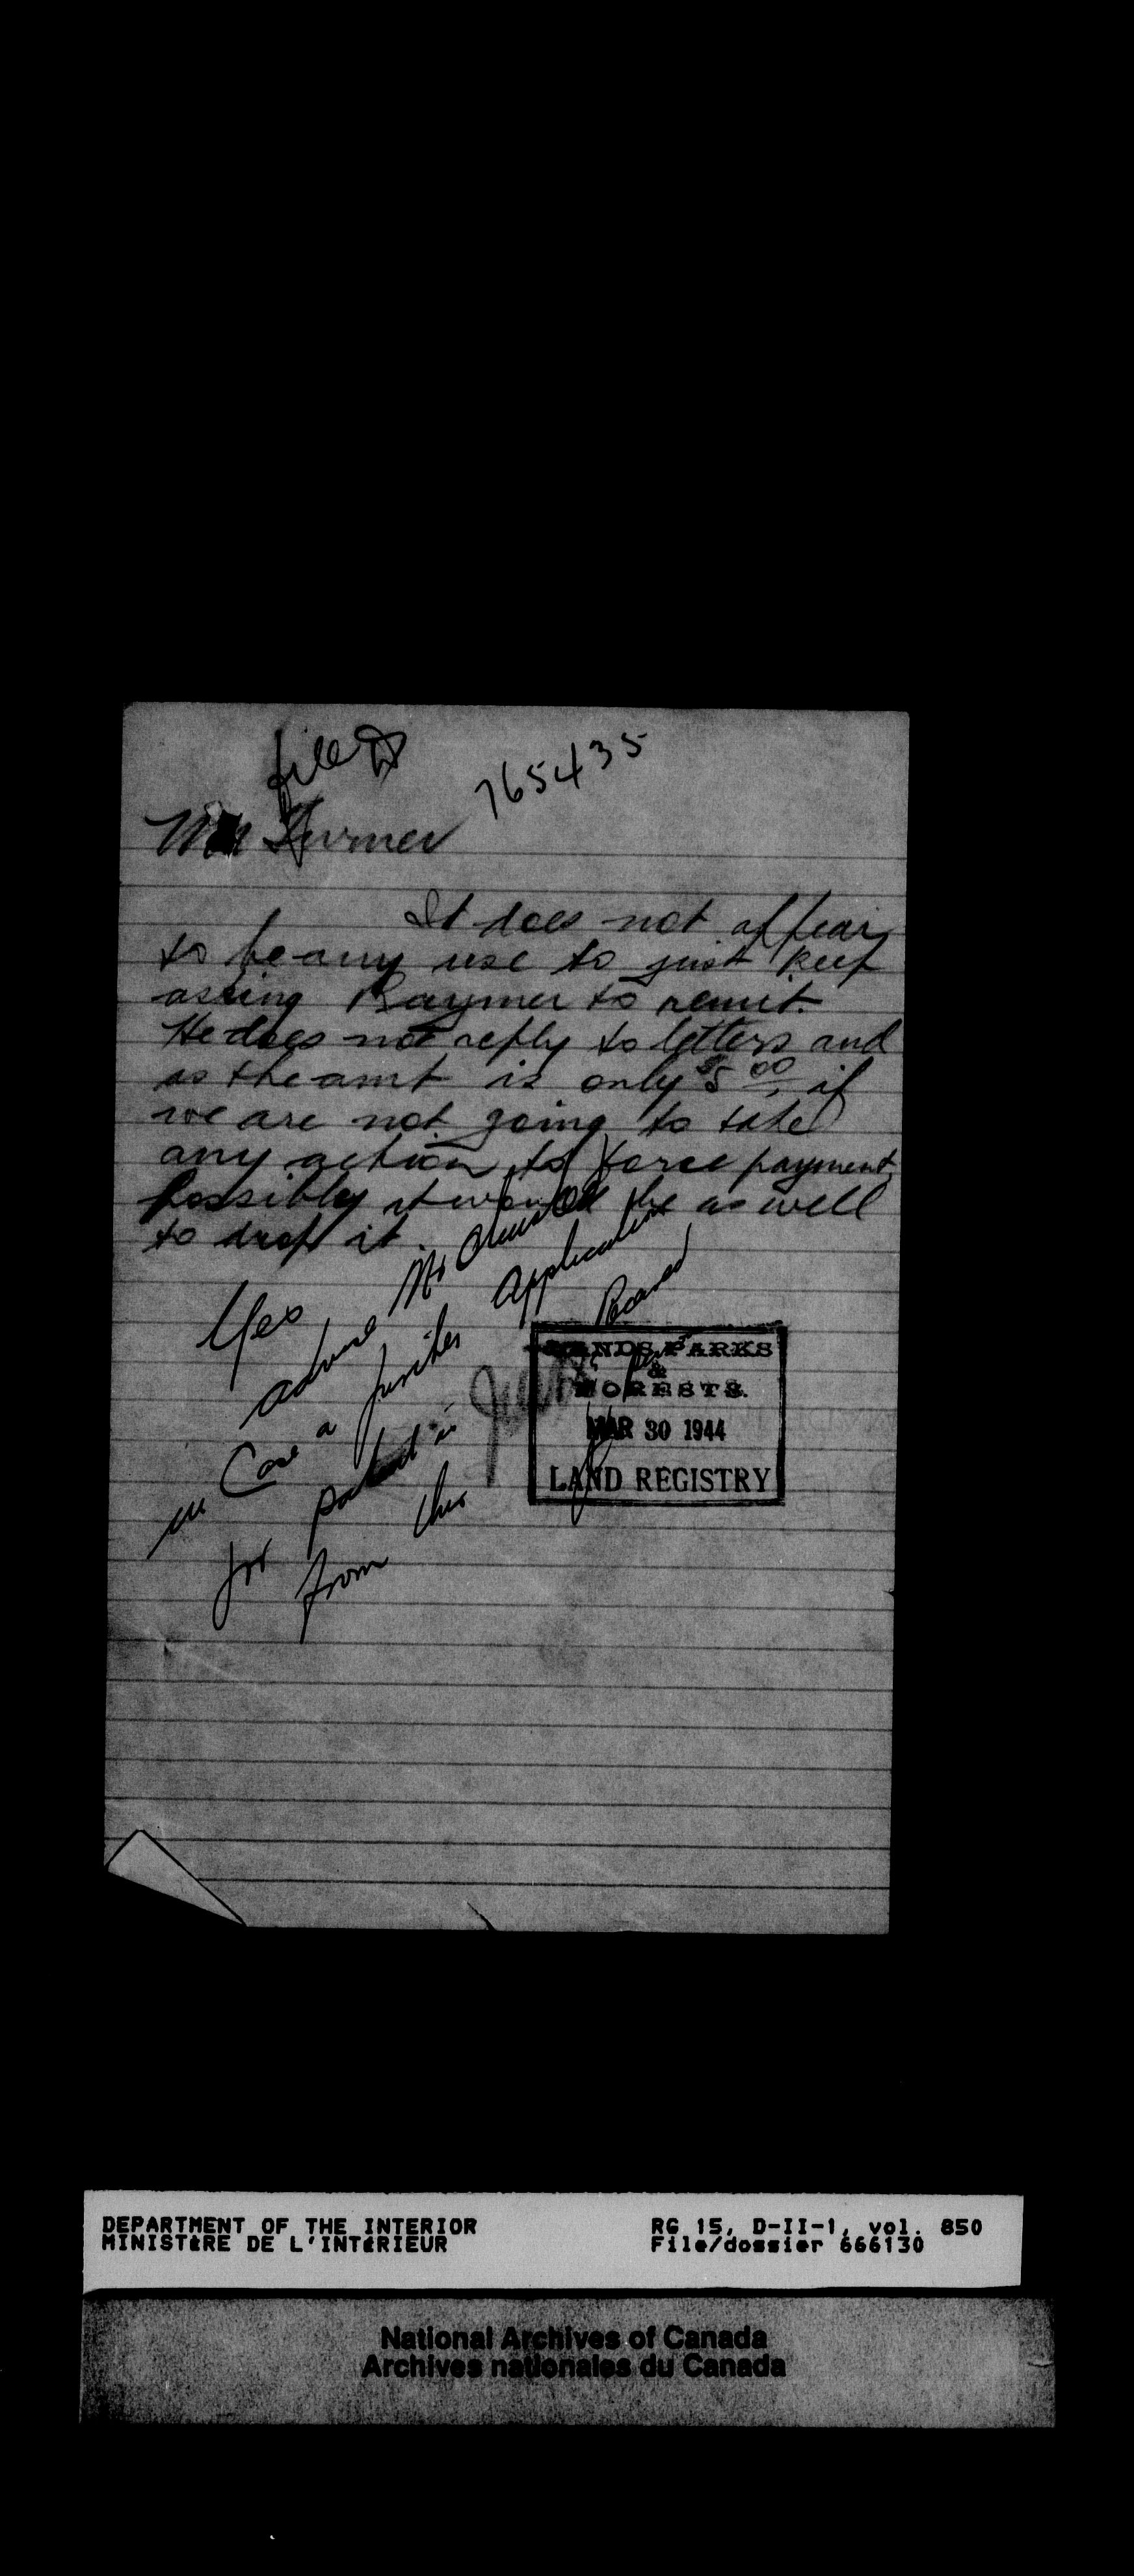 file
765435
Mr Turner
It does not appear
to be any use to just keep
asking Raymer to remit.
He does not reply to letters and
as the amt is only $5 00 if
we are not going to take
any action to force payment
possibly it would be as well
to drop it.
Yes
advise Mr
in Case a further Application
for patent is Received
from this
LANDS PARKS
&
FORESTS.
MAR 30 1944
LAND REGISTRY
DEPARTMENT OF THE INTERIOR
MINISTÈRE DE L'INTÉRIEUR
RG 15, D-II-1, vol. 850
File/dossier 666130
National Archives of Canada
Archives nationales du Canada